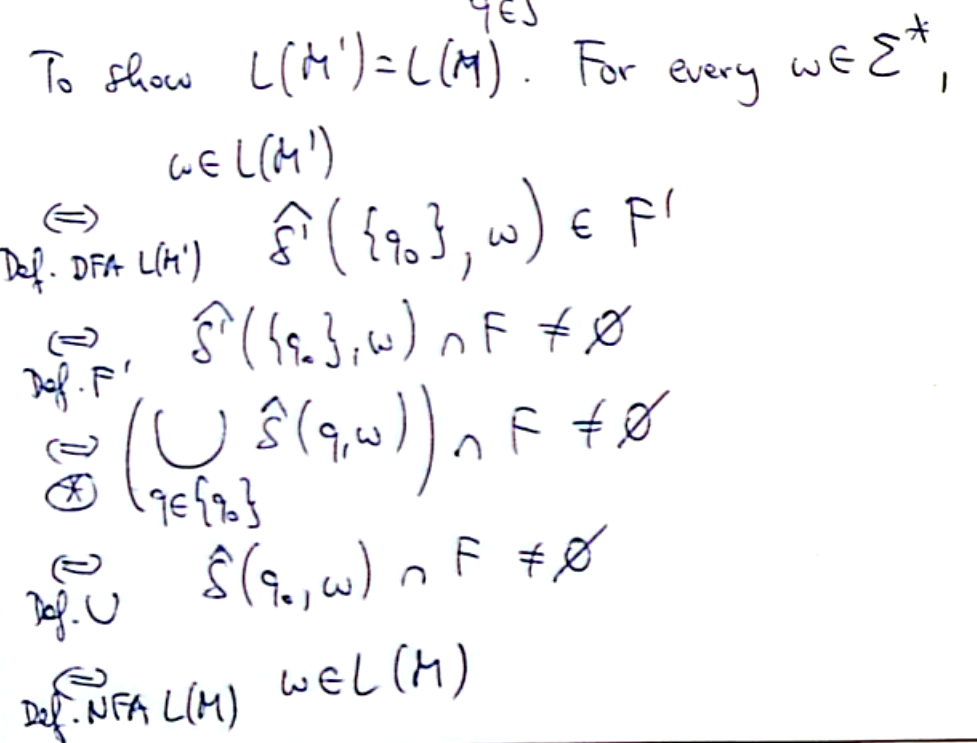 q∈S
To show L(M')=L(M). For every w∈Σ*,
w∈L(M')
⇔ Def. DFA L(M') δ̂'({q₀},w) ∈ F'
⇔ Def. F' δ̂'({q₀},w) ∩ F ≠ ∅
⇔ ⊛ (⋃ q∈{q₀} δ̂(q,w)) ∩ F ≠ ∅
⇔ Def. ∪ δ̂(q₀,w) ∩ F ≠ ∅
⇔ Def. NFA L(M) w∈L(M)